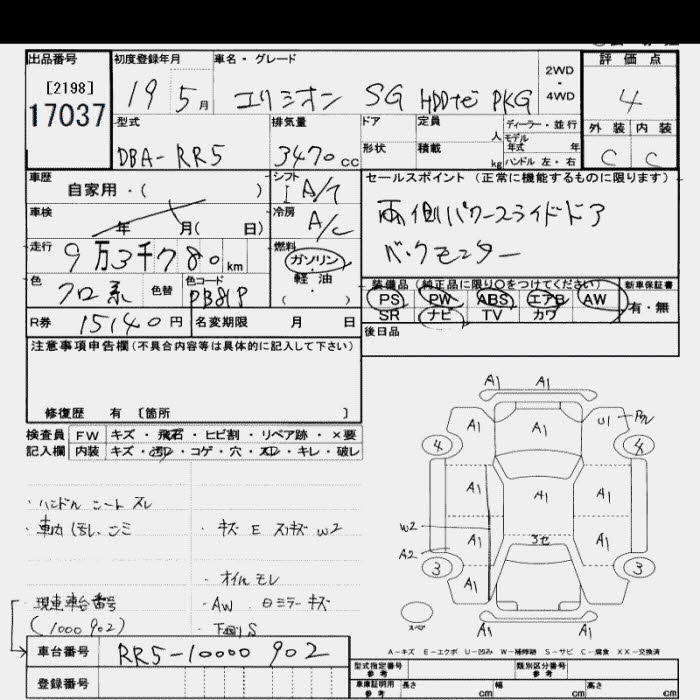 出品番号 初度登録年月 車名・グレード 2WD・4WD 評価点
[2198]
17037
19 5月 エリシオン SG HDDナビ PKG 4
外装 内装
C C
型式 排気量 ドア 定員 人 ディーラー・並行
形状 積載 kg モデル年式 年
ハンドル 左・右
DBA-RR5 3470cc
車歴 シフト セールスポイント (正常に機能するものに限ります)
自家用・( ) I A/T
車検 冷房
年 月( 日) A/C
両側パワースライドドア
バックモニター
走行 燃料
9万3千780km ガソリン・軽油・( )
色 色替 色コード
クロ系 PB81P
装備品 (純正品に限り○をつけてください) 新車保証書
PS PW ABS エアB AW 有・無
SR ナビ TV カワ
R券 15140円 名変期限 月 日
後日品
注意事項申告欄(不具合内容等は具体的に記入して下さい)
修復歴 有 〔箇所 〕
検査員 FW キズ・飛石・ヒビ割・リペア跡・×要
記入欄 内装 キズ・汚れ・コゲ・穴・スレ・キレ・破レ
・ハンドル シート スレ
・車内 汚レ、シミ ・キズ E スリキズ W2
・オイルモレ
・現車台番号 ・AW、Dミラーキズ
(1000902) ・下回りS
車台番号 RR5-1000902
登録番号
A1 A1
A1 A1 U1
4 4
A1 A1 A1
W2
A2 A1 3セ A1
3 A1 3
スペア
A1 A1
A-キズ E-エクボ U-凹み W-補修跡 S-サビ C-腐食 XX-交換済
型式指定番号 参考 類別区分番号 参考
車庫証明用 参考 長さ cm 幅 cm 高さ cm